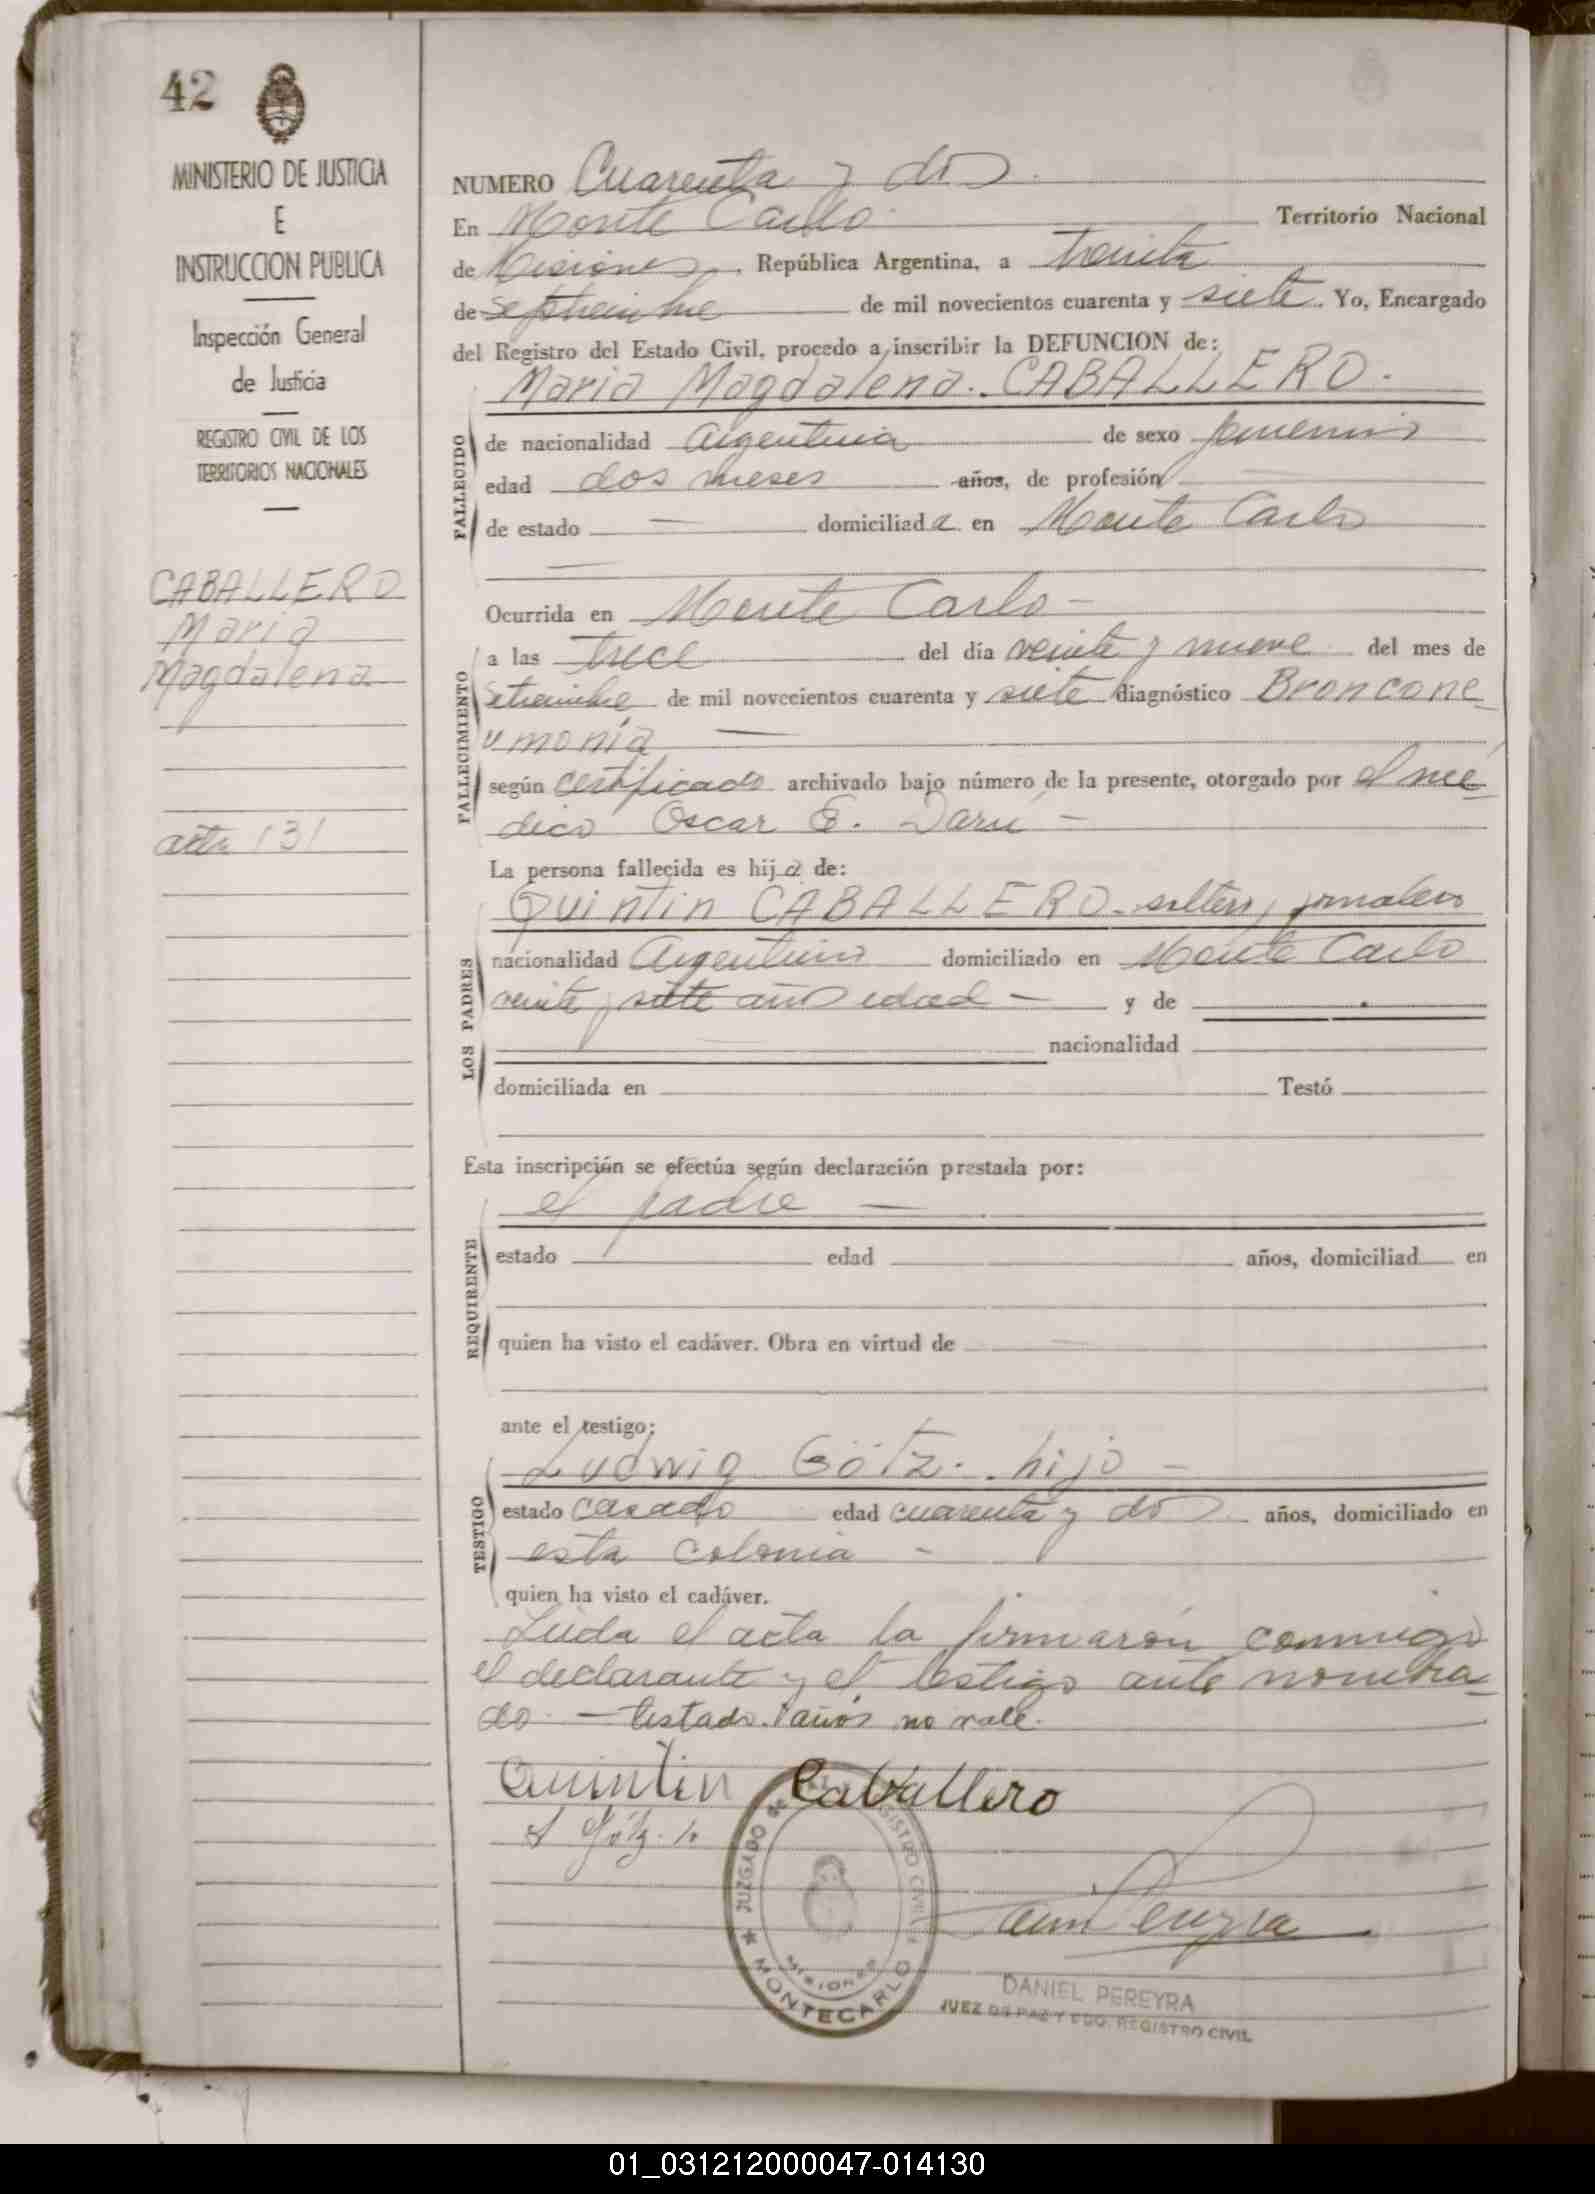 42
MINISTERIO DE JUSTICIA
E
INSTRUCCION PUBLICA
Inspección General
de Justicia
REGISTRO CIVIL DE LOS
TERRITORIOS NACIONALES
CABALLERO
Maria
Magdalena
acta 131
NUMERO Cuarenta y dos
En Monte Carlo Territorio Nacional
de Misiones, República Argentina, a treinta
de Septiembre de mil novecientos cuarenta y siete. Yo, Encargado
del Registro del Estado Civil, procedo a inscribir la DEFUNCION de:
Maria Magdalena CABALLERO.
FALLECIDO
de nacionalidad Argentina de sexo femenino
edad dos meses años, de profesión —
de estado — domiciliada en Monte Carlo
—
Ocurrida en Monte Carlo -
FALLECIMIENTO
a las trece del día veinte y nueve del mes de
Setiembre de mil novecientos cuarenta y siete diagnóstico Broncone
umonía —
según certificado archivado bajo número de la presente, otorgado por el mé-
dico Oscar E. Darú -
La persona fallecida es hija de:
LOS PADRES
Quintin CABALLERO - soltero, jornalero
nacionalidad Argentino domiciliado en Monte Carlo
veinte y siete años edad — y de
nacionalidad
domiciliada en Testó
Esta inscripción se efectúa según declaración prestada por:
REQUIRENTE
el padre —
estado edad años, domiciliad en
quien ha visto el cadáver. Obra en virtud de —
ante el testigo:
TESTIGO
Ludwig Götz. hijo -
estado casado edad cuarenta y dos años, domiciliado en
esta colonia -
quien ha visto el cadáver.
Leida el acta la firmarón conmigo
el declarante y el testigo ante nombra-
do. — testado: años no vale.
Quintin Caballero
L Götz. h
JUZGADO DE REGISTRO CIVIL
MISIONES
MONTECARLO
Pereyra
DANIEL PEREYRA
JUEZ DE PAZ Y EDO. REGISTRO CIVIL
01_031212000047-014130